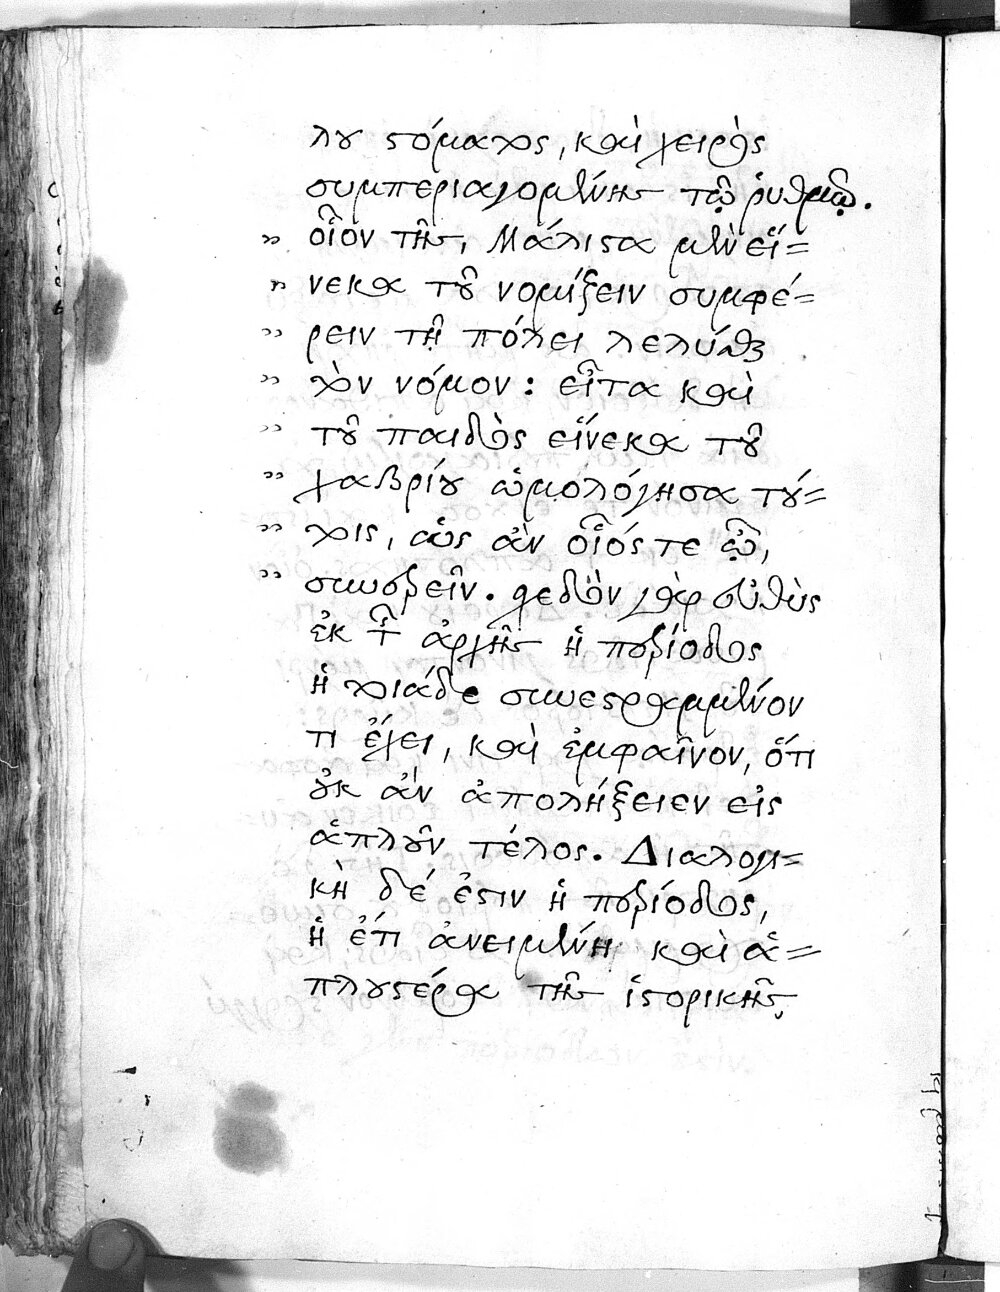 λου στόματος, καὶ χειρὸς
συμπεριαγομένης τῷ ῥυθμῷ.
οἷον τῆς, Μάλιστα μὲν εἵ=
νεκα τοῦ νομίζειν συμφέ=
ρειν τῇ πόλει λελύσθαι
τὸν νόμον : εἶτα καὶ
τοῦ παιδὸς εἵνεκα τοῦ
χαβρίου ὡμολόγησα τού=
τοις, ὡς ἂν οἷός τε ὦ,
συνερεῖν. σχεδὸν γὰρ εὐθὺς
ἐκ τῆς ἀρχῆς ἡ περίοδος
ἡ τοιάδε συνεστραμμένον
τι ἔχει, καὶ ἐμφαῖνον, ὅτι
οὐκ ἂν ἀπολήξειεν εἰς
ἁπλοῦν τέλος. Διαλογι=
κὴ δέ ἐστιν ἡ περίοδος,
ἡ ἔτι ἀνειμένη καὶ ἁ=
πλουστέρα τῆς ἱστορικῆς